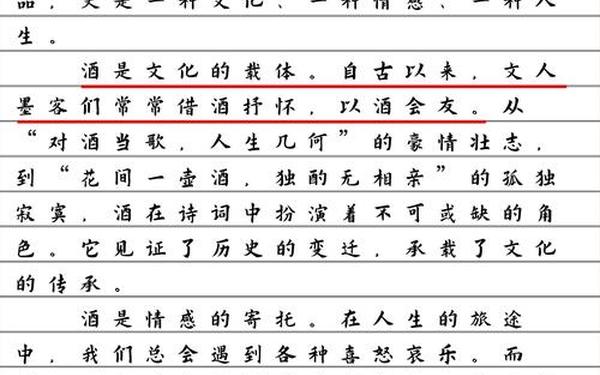 品，更是一种文化、一种情感、一种人
生。
酒是文化的载体。自古以来，文人
墨客们常常借酒抒怀，以酒会友。从
“对酒当歌，人生几何”的豪情壮志，
到“花间一壶酒，独酌无相亲”的孤独
寂寞，酒在诗词中扮演着不可或缺的角
色。它见证了历史的变迁，承载了文化
的传承。
酒是情感的寄托。在人生的旅途
中，我们总会遇到各种喜怒哀乐。而